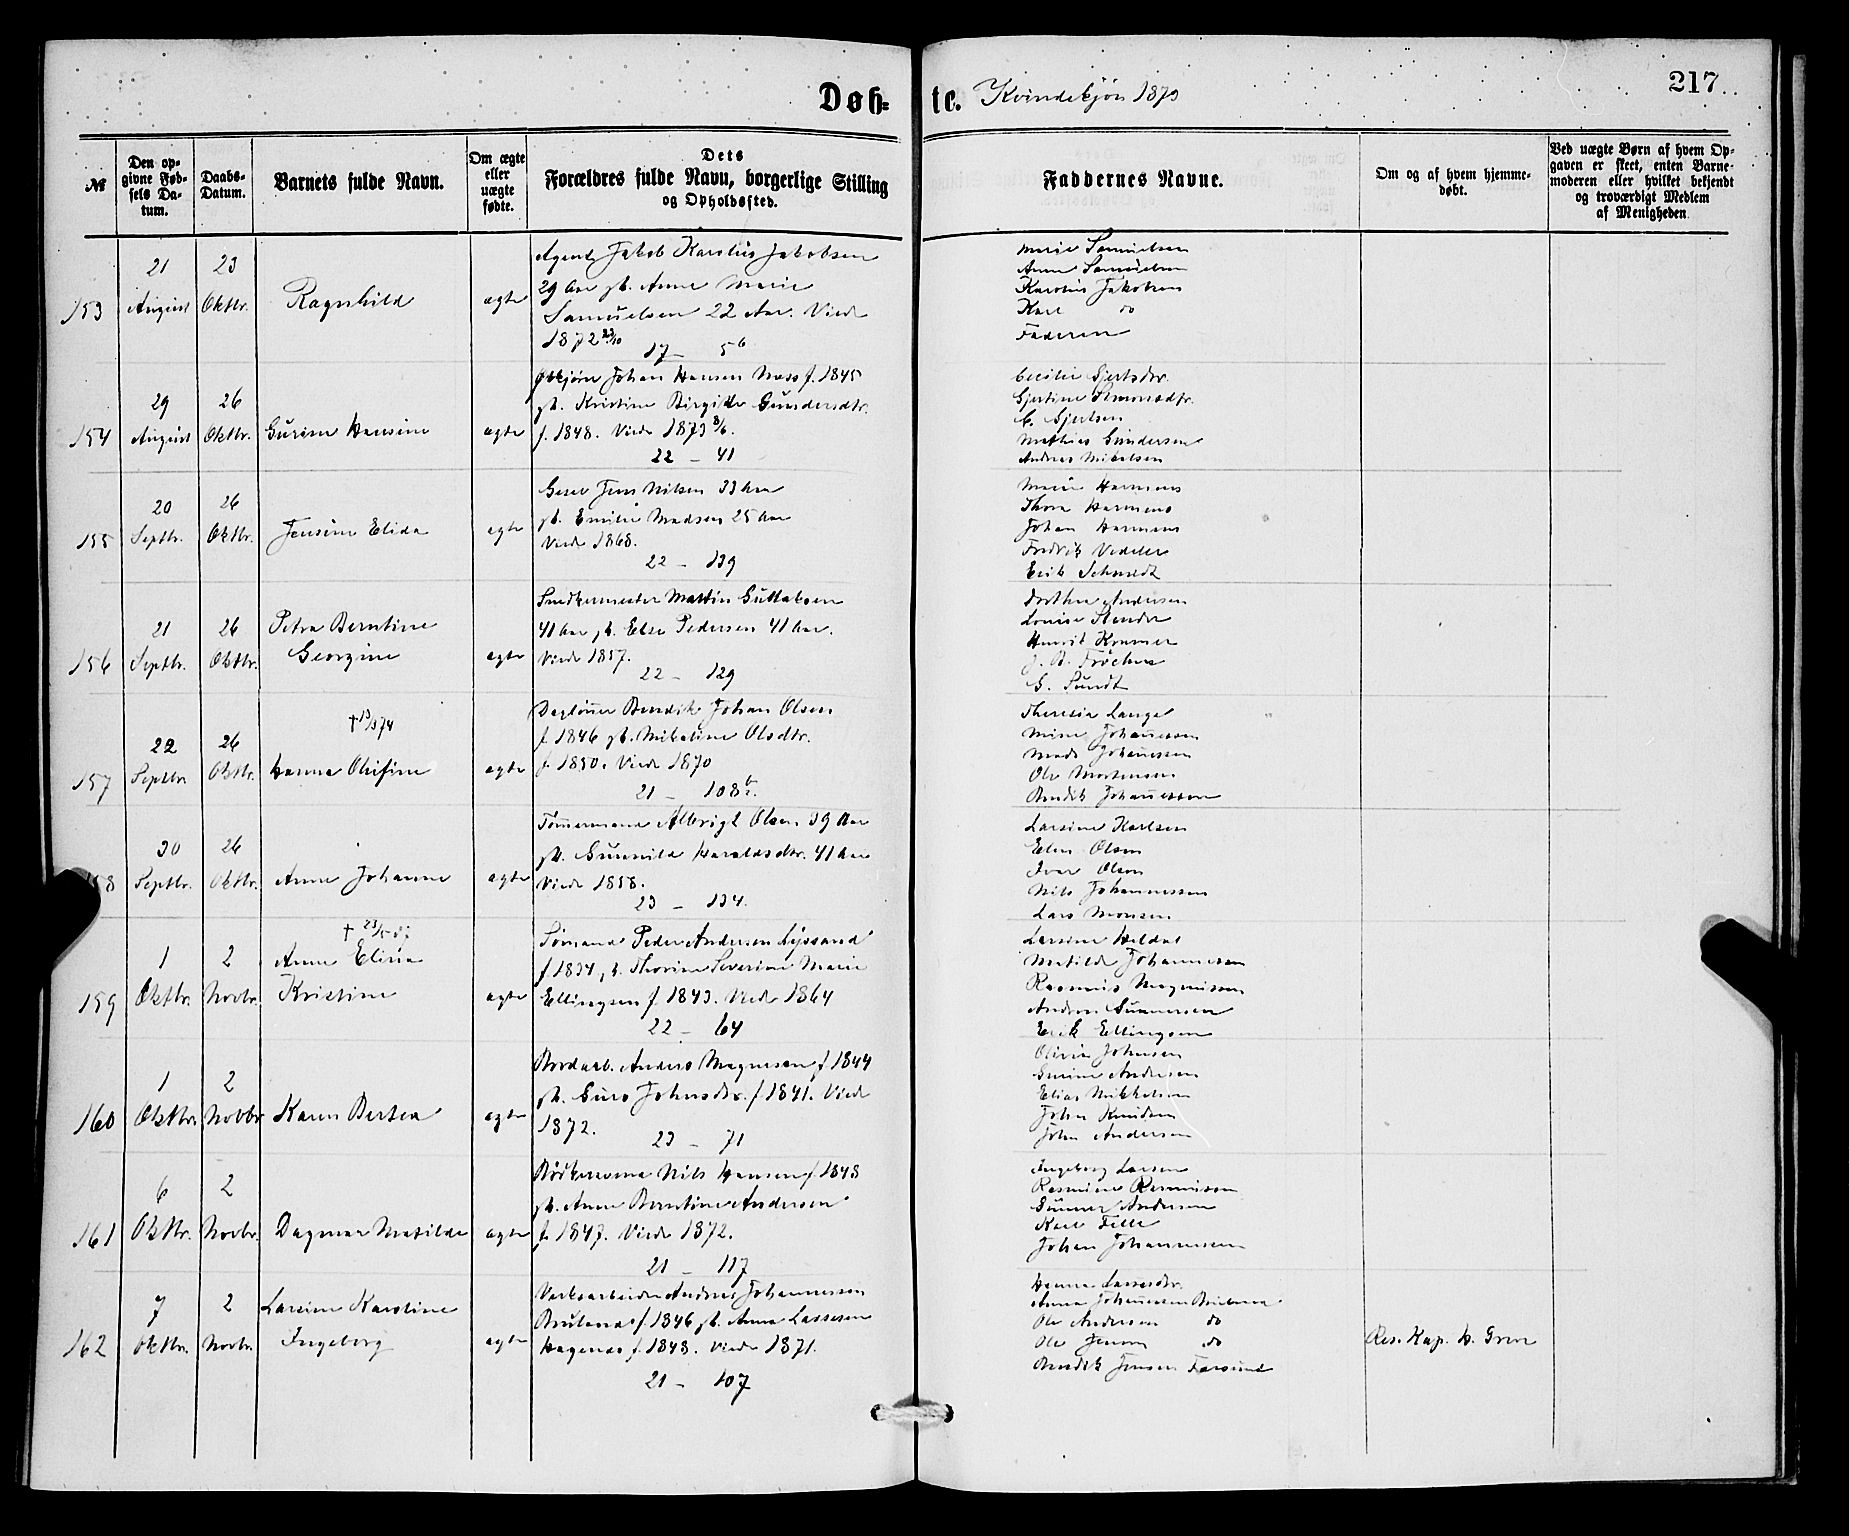 Døb-
te.
Kvindekjøn 1873
217.
№
Den opgivne Fødsels Datum.
Daabs-Datum.
Barnets fulde Navn.
Om ægte eller uægte fødte.
Dets
Forældres fulde Navn, borgerlige Stilling
og Opholdssted.
Faddernes Navne.
Om og af hvem hjemmedøbt.
Ved uægte Børn af hvem Opgaven er skeet, enten Barnemoderen eller hvilket bekjendt og troværdigt Medlem af Menigheden.
153
21 August
23 Oktbr.
Ragnhild
ægte
Agent Jakob Karelius Jakobsen
29 Aar Anne Marie
Samuelsen 22 Aar. Viede
1872 23/10
17 – 56
Marie Samuelsen
Anne Samuelsen
Karelius Jakobsen
Karl do
Faderen
154
29 August
26 Oktbr.
Gurine Hansine
ægte
Johan Hansen Næss f. 1845
Kristine Birgitte Gundersdtr.
f. 1848. Viede 1873 8/6.
22 – 41
Cecilie Gjertsdtr.
Gjertine Simonsdtr.
C. Gjertsen
Mathias Gundersen
Andreas Mikelsen
155
20 Septbr.
26 Oktbr.
Jensine Elida
ægte
Jens Nilsen 33 Aar
Emilie Madsen 25 Aar
Viede 1868.
22 – 139
Marie Harmens
Thora Harmens
Johan Harmens
Fredrik Vedeler
Erik Schmidt
156
21 Septbr.
26 Oktbr.
Petra Berntine
Georgine
ægte
Snedkermester Martin Guttabsen
41 Aar Else Pedersen 41 Aar.
Viede 1857.
22 – 129
Dorthea Andersen
Louise Stender
Henrik Krammer
G. Sundt
157
22 Septbr.
26 Oktbr.
† 13/3 74
Hanna Olufine
ægte
Daglønner Bendik Johan Olsen
f. 1846 Mikeline Olsdtr.
f. 1850. Viede 1870
21 – 108b.
Theresia Lange
Mine Johannessen
Mads Johannessen
Ole Mortensen
Bendik Johannessen
158
30 Septbr.
26 Oktbr.
Anne Johanne
ægte
Tømmermand Albrigt Olsen 39 Aar
Gunnild Haraldsdtr. 41 Aar
Viede 1858.
23 – 134.
Larsine Karlsen
Elen Olsen
Ivar Olsen
Nils Johannessen
Lars Monsen
159
1 Oktbr.
2 Novbr.
† 23/5 87
Anne Eliria
Kristine
ægte
Sømand Peder Andersen Lyssand
f. 1834, Thorine Severine Marie
Ellingsen f. 1843. Viede 1864
22 – 64
Larsine Heldal
Matilde Johannesen
Rasmus Magnussen
Andreas Gunnersen
Erik Ellingsen
160
1 Oktbr.
2 Novbr.
Karen Bertea
ægte
Bordarb. Anders Magnesen f. 1844
Guro Johnsdtr. f. 1841. Viede
1872.
23 – 71
Olivia Johnsen
Gurine Andersen
Elias Mikkelsen
John Knudsen
John Andersen
161
6 Oktbr.
2 Novbr.
Dagmar Matilde
ægte
Bødkersvend Nils Hansen f. 1848
Anne Berntine Andersen
f. 1847. Viede 1872.
21 – 117
Ingeborg Larsen
Rasmine Rasmussen
Gunner Andersen
Karl Felle
Johan Johannessen
162
7 Oktbr.
2 Novbr.
Larsine Karoline
Ingeborg
ægte
Verksarbeider Andreas Johannessen
f. 1846 Anna Lassesen
Hagenæs f. 1843. Viede 1871.
21 – 107
Hanna Lassesdtr.
Anna Johannessen
Ole Andersen do
Ole Jensen do
Bendik Jensen Farsund
Res. Kap. H. Greve